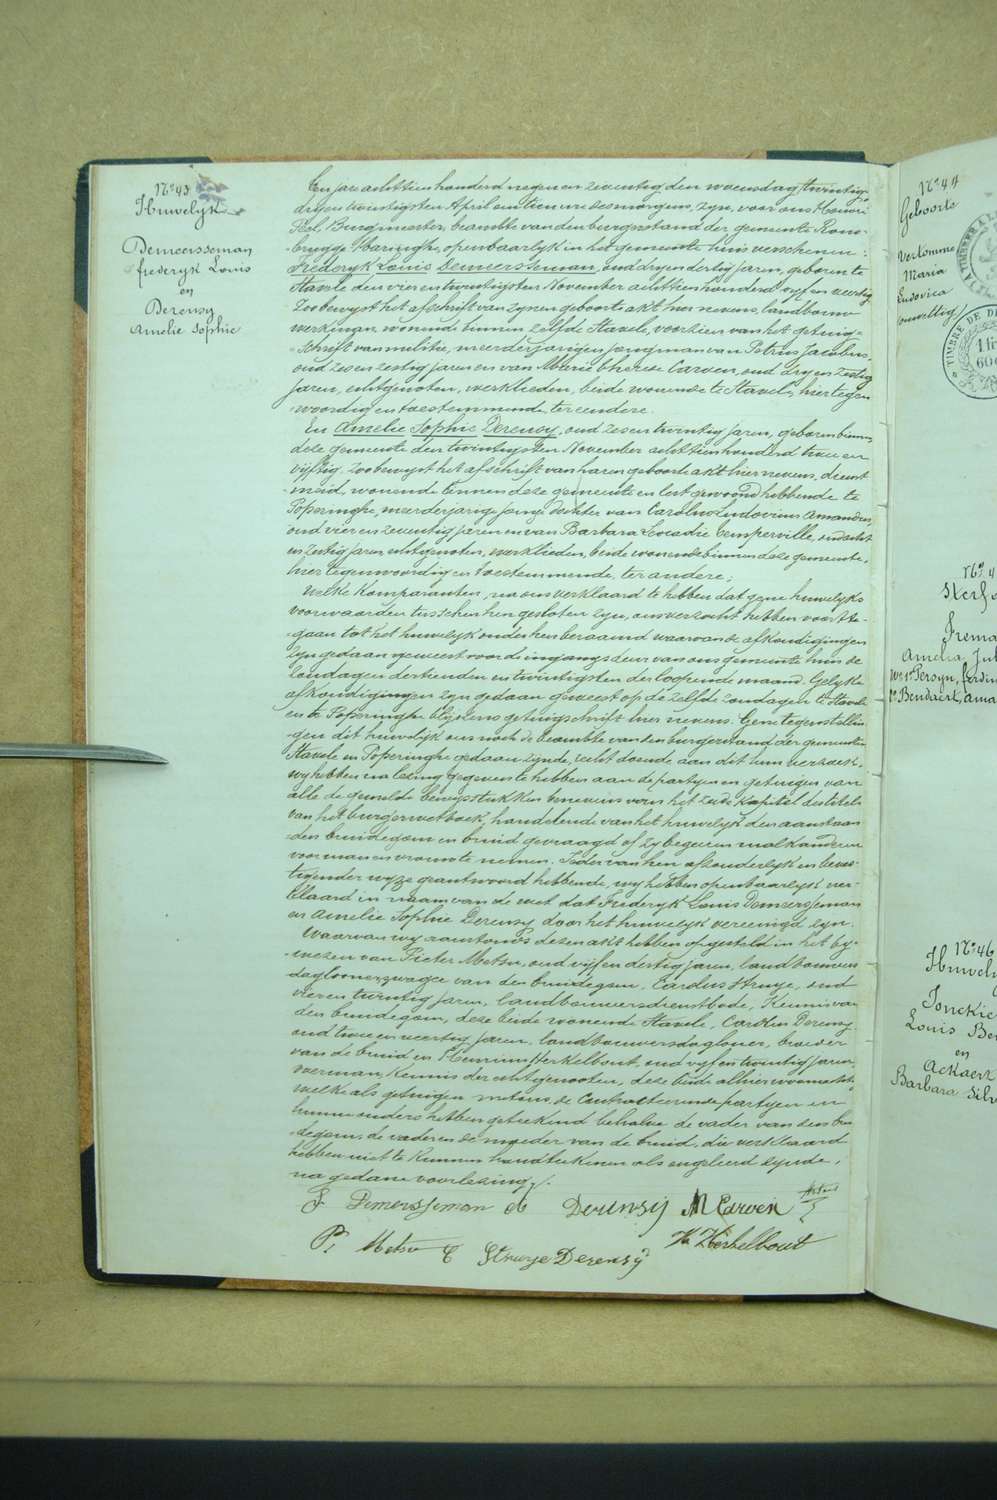 N° 43
Huwelyk
Demeersseman
Frederyk Louis
en
Derensy
Amelie Sophie
Een jaar achttien honderd negen en zeventig den woensdag
dryen twintigsten April om tien ure des morgens, zyn, voor ons Henri
Burgmeester, beambte van den burgerstand der gemeente Rous-
-brugge Haringhe, openbaarlyk in het gemeente huis verschenen:
Frederyk Louis Demeersseman, oud dryen dertig jaren, geboren te
Stavele den vier en twintigsten November achttien honderd vyf en veertig
Zoo bewyst het afschrift van zynen geboorte akt hier nevens, landbouw
werkman, wonende binnen Zelfde Stavele, voorzien van het getuig-
-schrift van militie, meerderjarigen jongman van Petrus Jacobus,
oud zes en zestig jaren en van Marie Therese Carven, oud dry en zestig
Jaren, echtgenoten, werklieden, beide wonende te Stavele, hier tegen
-woordig en toestemmende ter eendere.
En Amelie Sophie Derensy, oud zes en twintig jaren, geboren binnen
deze gemeente den twintigsten November achttien honderd twee en
vyftig, zoo bewyst het afschrift van haren geboorte akt hier nevens, dienst
-meid, wonende binnen deze gemeente en lest gewoond hebbende te
Poperinghe, meerderjarige jonge dochter van Carolus Ludovicus Amandus,
oud vier en zeventig jaren en van Barbara Leocadie Temperville, oud acht
en zestig jaren, echtgenoten, werklieden, beide wonende binnen deze gemeente,
hier tegenwoordig en toestemmende, ter andere;
Welke Komparanten, na ons verklaard te hebben dat geene huwelyks
voorwaarden tusschen hen gesloten zyn, ons verzocht hebben voort te-
-gaan tot het huwelyk onder hen beraamd waarvan de afkondigingen
zyn gedaan geweest voor de ingangs deur van ons gemeente huis de
Zondagen dertienden en twintigsten der loopende maand. Gelyke
afkondigingen zyn gedaan geweest op de zelfde zondagen te Stavele
en te Poperinghe blykens getuigschrift hier nevens. Geene tegenstellin-
-gen dit huwelyk ons noch de beambte van den burgerstand der gemeenten
Stavele en Poperinghe gedaan zynde, recht doende aan dit hun verzoek,
wy hebben na lezing gegeven te hebben aan de partyen en getuigen van
alle de gemelde bewysstukken benevens van het zesde Kapitel des titels
van het burger wetboek, handelende van het huwelyk den aanstaan
-den bruidegom en bruid gevraagd of zy begeren malkanderen
voor man en vrouw te nemen. Ieder van hen afzonderlyk en beves-
-tigender wyze geantwoord hebbende, wy hebben openbaarlyk ver-
-klaard in naam van de wet dat Frederyk Louis Demeersseman
en Amelie Sophie Derensy door het huwelyk vereenigd zyn.
Waarvan wy aanstonds dezen akt hebben opgesteld in het by-
-wezen van Pieter Metsu, oud vyf en dertig jaren, landbouwers
dagloner, zwager van den bruidegom, Carolus Struye, oud
vier en twintig jaren, landbouwersdienstbode, Kennis van
den bruidegom, deze beide wonende Stavele, Carolus Derensy
oud twee en veertig jaren, landbouwersdagloner, broeder
van de bruid en Henricus Herkelbout, oud vyf en twintig jaren
veerman, Kennis der echtgenooten, deze beide alhier
welke als getuigen met ons, de Contracteerende partyen en
hunne ouders hebben geteekend behalve de vader van den brui
-degom, de vader en de moeder van de bruid, die verklaard
hebben niet te Kunnen handteekenen als ongeleerd zynde,
na gedane voorlezing.
F Demersseman A Derensy M Carven
P. Metsu C Struye Derensy H. Herkelbout
N° 44
Geboorte
Verkomme
Maria
Ludovica
TIMBRE DE D
Sterf
Amelia Jul
We 1° Persyn, ferdin
2° Bendaert, ama
N° 46
Huwely
Jonckie
Louis Be
en
Ackaert
Barbara Silv